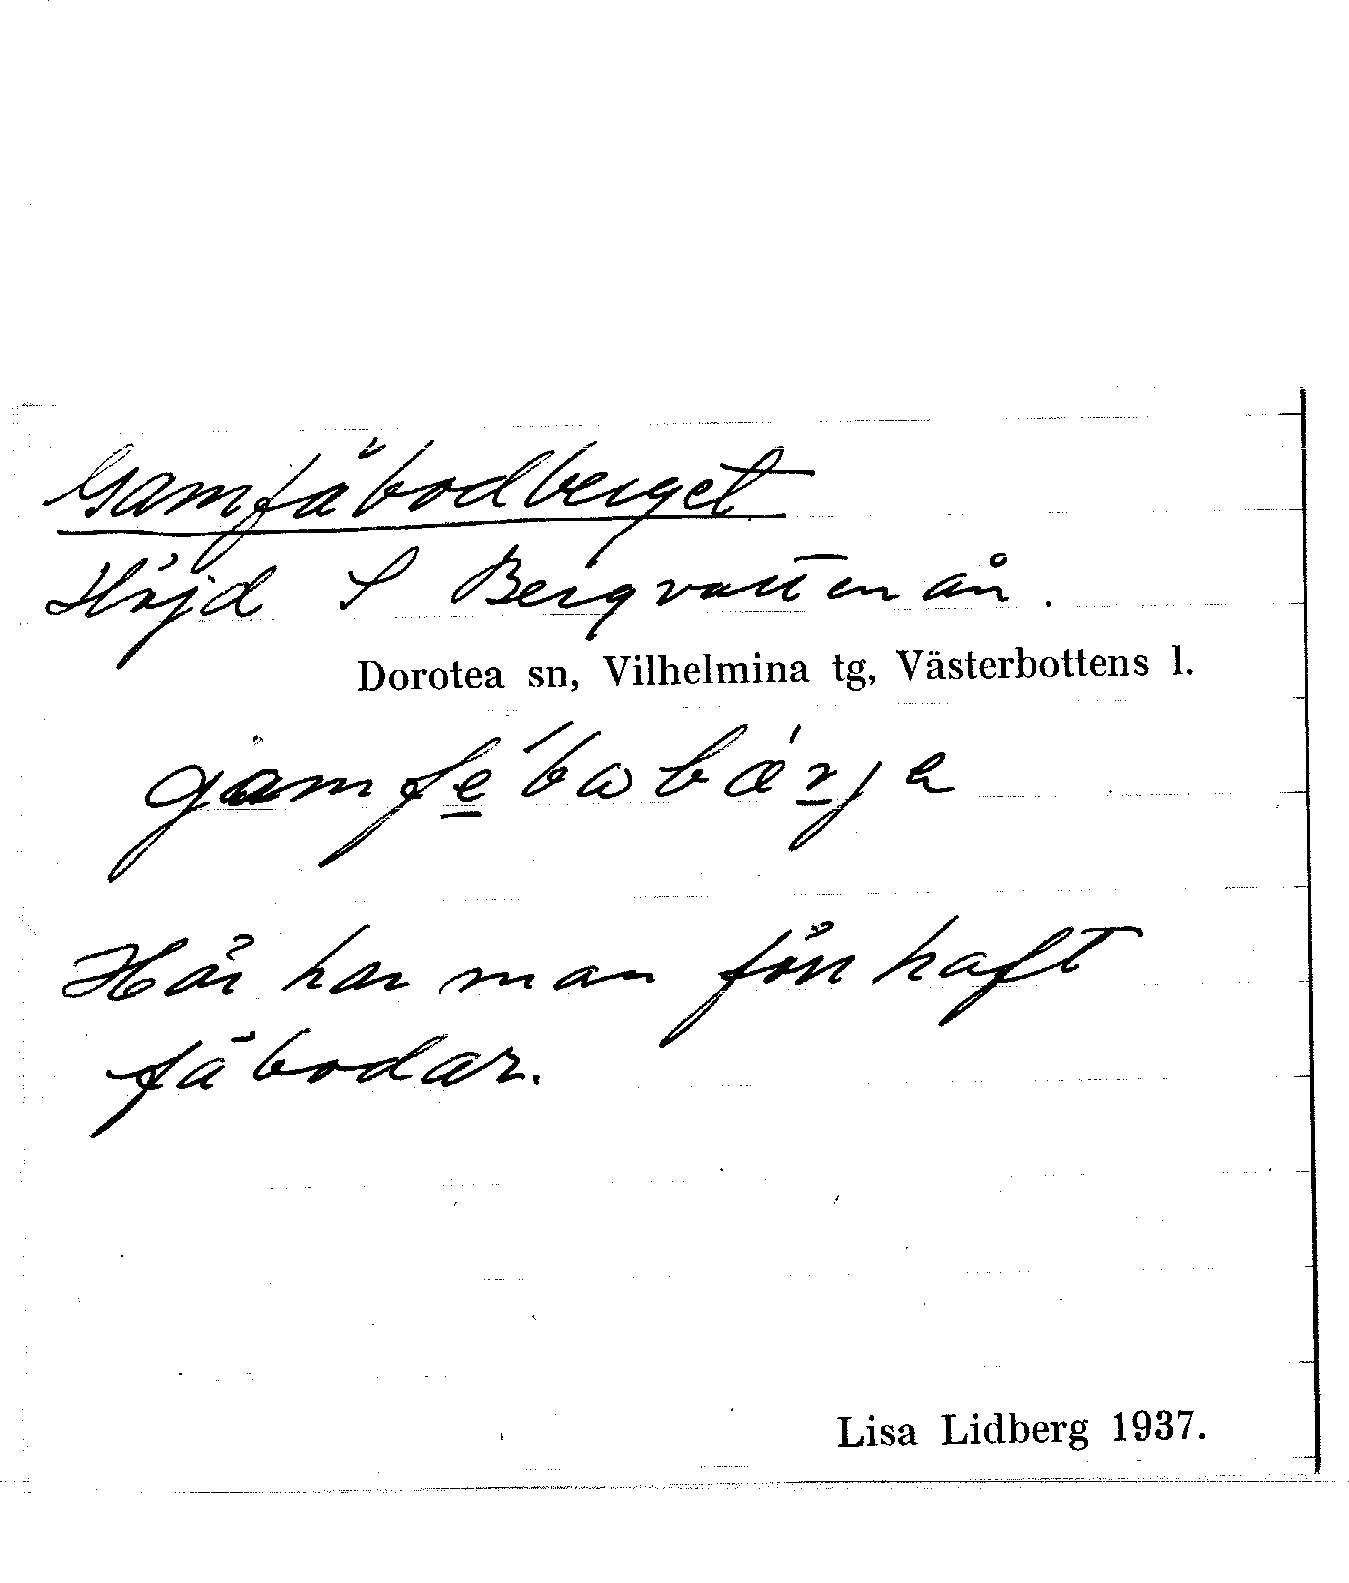 Gamfäbodberget
Höjd S Bergvattenån.
Dorotea sn, Vilhelmina tg, Västerbottens l.
gamfe̲´bωbæ´r̲ja
Här har man förr haft
fäbodar.
Lisa Lidberg 1937.